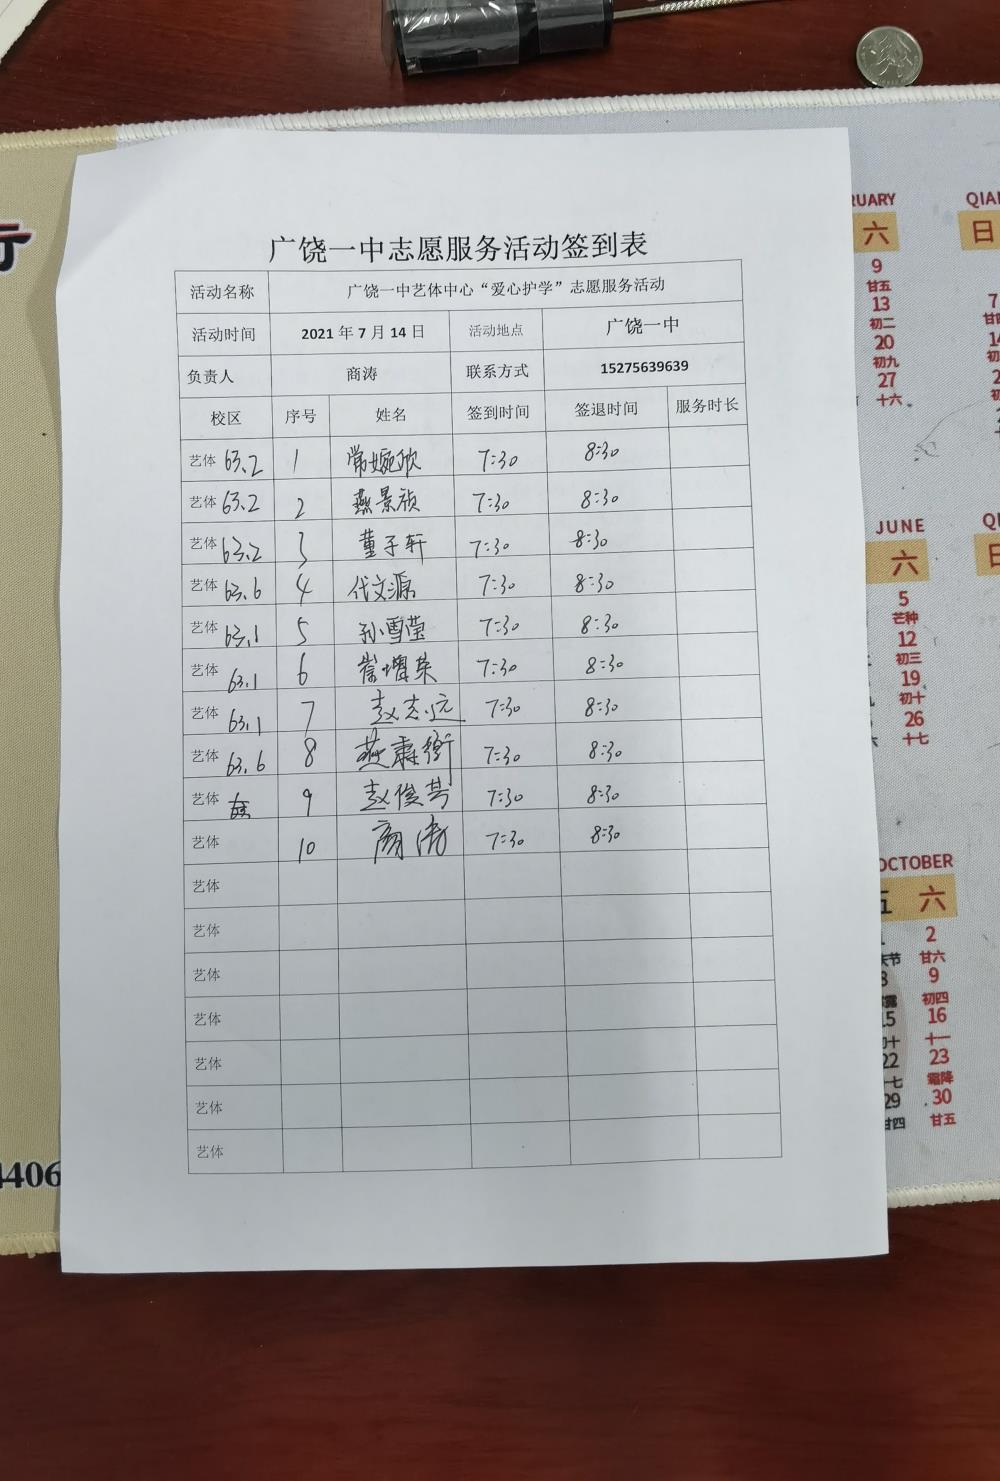 广饶一中志愿服务活动签到表
活动名称 广饶一中艺体中心“爱心护学”志愿服务活动
活动时间 2021年7月14日 活动地点 广饶一中
负责人 商涛 联系方式 15275639639
校区 序号 姓名 签到时间 签退时间 服务时长
艺体 63.2 1 常婉欣 7:30 8:30
艺体 63.2 2 燕景祯 7:30 8:30
艺体 63.2 3 董子轩 7:30 8:30
艺体 63.6 4 代文源 7:30 8:30
艺体 63.1 5 孙雪莹 7:30 8:30
艺体 63.1 6 常增荣 7:30 8:30
艺体 63.1 7 赵志远 7:30 8:30
艺体 63.6 8 燕肃衡 7:30 8:30
艺体 9 赵俊 7:30 8:30
艺体 10 商涛 7:30 8:30
艺体
艺体
艺体
艺体
艺体
艺体
艺体
行
4406
RUARY
六
9
廿五
13
初二
20
初九
27
十六
QIA
日
JUNE
六
5
芒种
12
初三
19
初十
26
十七
OCTOBER
五 六
2
廿六
9
初四
15 16
初十 十一
22 23
十七 霜降
29 30
廿四 廿五